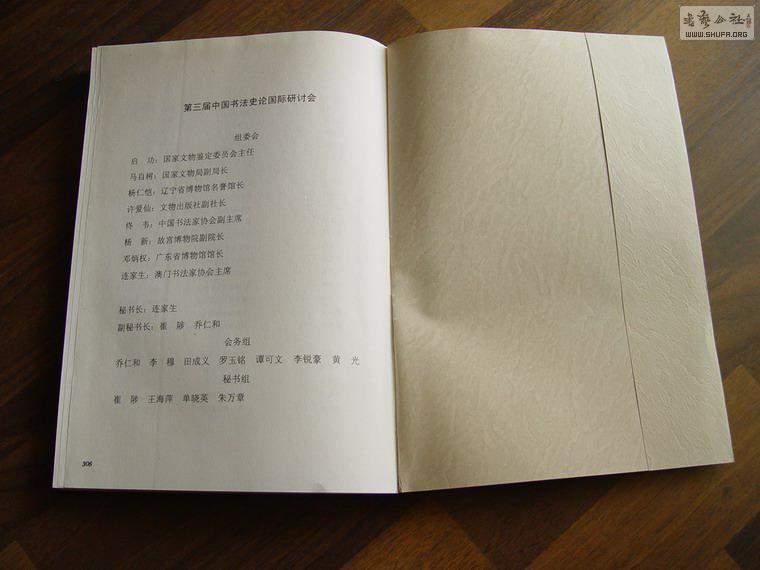 第三届中国书法史论国际研讨会
组委会
启　功：国家文物鉴定委员会主任
马自树：国家文物局副局长
杨仁恺：辽宁省博物馆名誉馆长
许爱仙：文物出版社副社长
佟　韦：中国书法家协会副主席
杨　新：故宫博物院副院长
邓炳权：广东省博物馆馆长
连家生：澳门书法家协会主席
秘书长：连家生
副秘书长：崔　陟　乔仁和
会务组
乔仁和　李　穆　田成义　罗玉铭　谭可文　李锐豪　黄　光
秘书组
崔　陟　王海萍　单晓英　朱万章
306
书艺公社
WWW.SHUFA.ORG